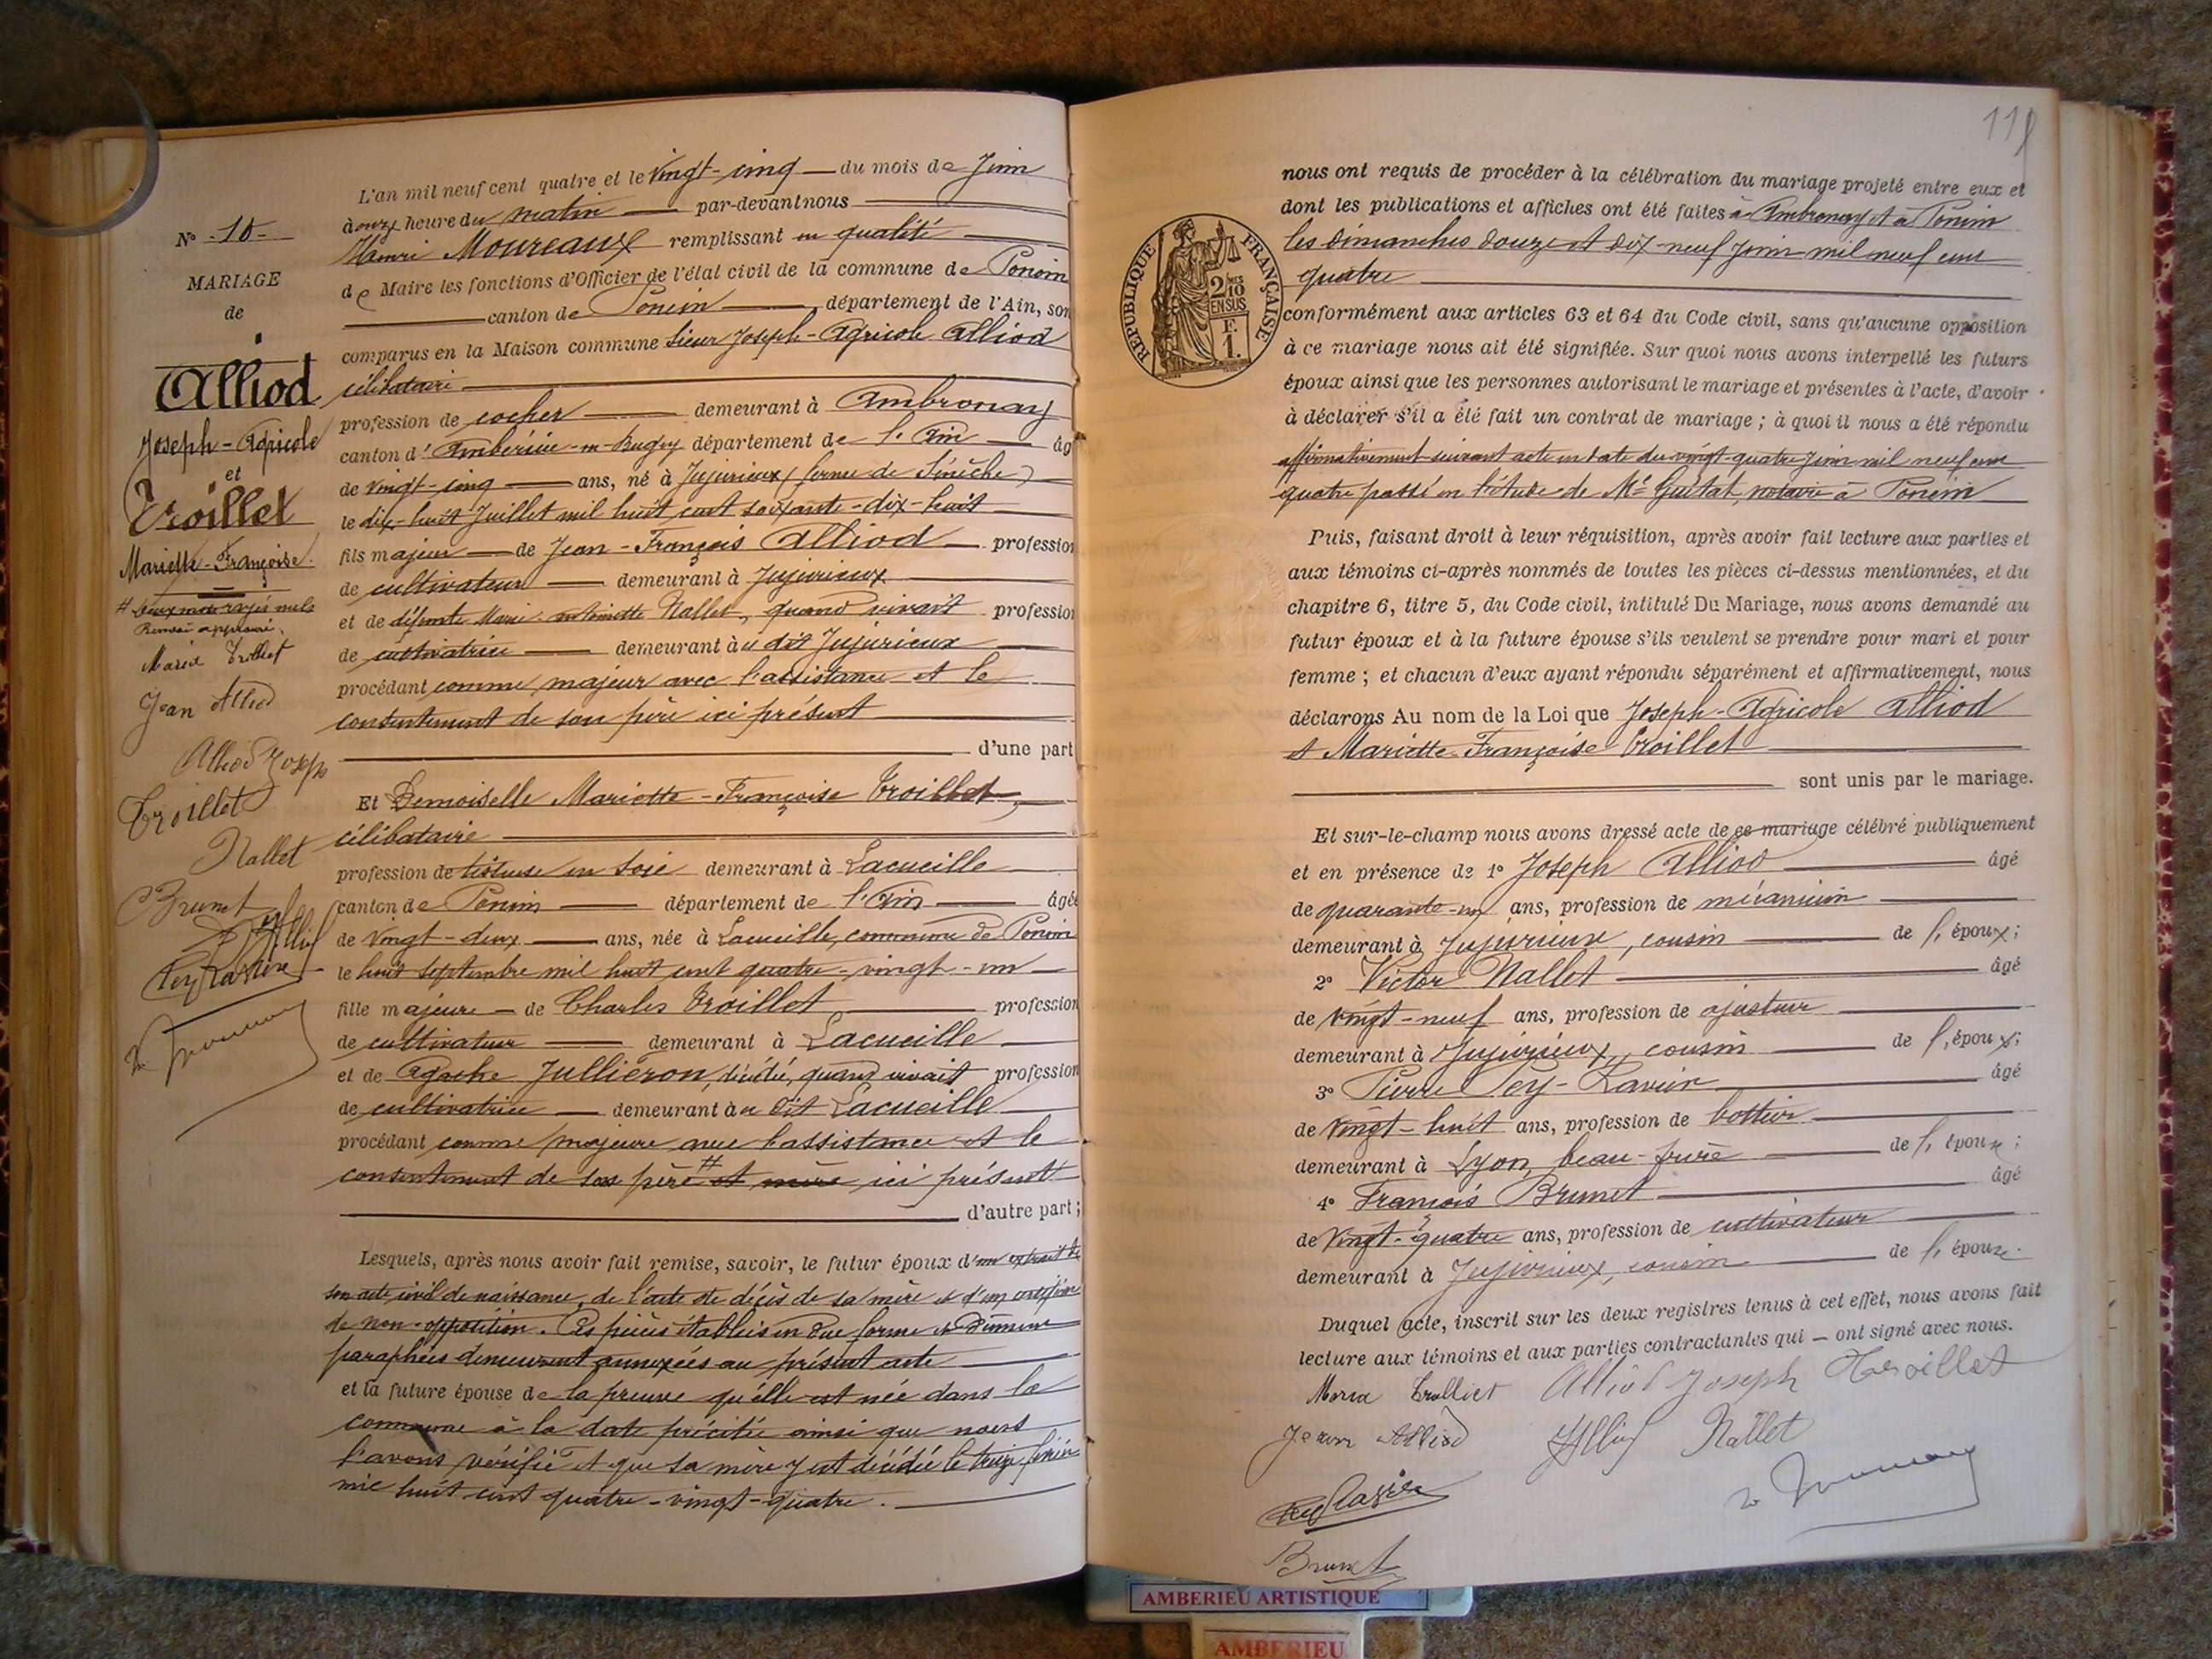 L'an mil neuf cent quatre et le vingt-cinq du mois de Juin
à onze heure du matin par-devant nous
Henri Moureaux remplissant en qualité
de Maire les fonctions d'Officier de l'état civil de la commune de Poncin
canton de Poncin, département de l'Ain, son
comparus en la Maison commune Sieur Joseph-Agricole Alliod
célibataire
profession de cocher demeurant à Ambronay
canton d'Ambérieu-en-Bugey département de l'Ain âg
de vingt-cinq ans, né à Jujurieux (ferme de
le dix-huit Juillet mil huit cent soixante-dix-huit
fils majeur de Jean-François Alliod profession
de cultivateur demeurant à Jujurieux
et de défunte Marie Antoinette Nallet, quand vivait profession
de cultivatrice demeurant au dit Jujurieux
procédant comme majeur avec l'assistance et le
consentement de son père ici présent
d'une part
Et Demoiselle Mariette-Françoise Troillet,
célibataire
profession de tisseuse en soie demeurant à Lacueille
canton de Poncin département de l'Ain âgée
de vingt-deux ans, née à Lacueille, commune de Poncin
le huit septembre mil huit cent quatre-vingt-un
fille majeure de Charles Troillet profession
de cultivateur demeurant à Lacueille
et de Agathe Jullieron, décédée, quand vivait profession
de cultivatrice demeurant au dit Lacueille
procédant comme majeure avec l'assistance et le
consentement de son père # et mère ici présent
d'autre part ;
Lesquels, après nous avoir fait remise, savoir, le futur époux d'un extrait de
son acte civil de naissance, de l'acte de décès de sa mère et d'un certificat
de non-opposition. Ces pièces établies en due forme et dûment
paraphées demeurent annexées au présent acte
et la future épouse de la preuve qu'elle est née dans la
commune à la date précitée ainsi que nous
l'avons vérifié et que sa mère y est décédée le treize février
mil huit cent quatre-vingt-quatre.
N° 10
MARIAGE
de
Alliod
Joseph-Agricole
et
Troillet
Mariette-Françoise.
# deux mots rayés nuls
Renvoi approuvé.
Maria Trolliet
Jean Alliod
Alliod Joseph
Troillet
Nallet
Brunet
119
nous ont requis de procéder à la célébration du mariage projeté entre eux et
dont les publications et affiches ont été faites à Ambronay et à Poncin
les dimanches douze et dix-neuf Juin mil neuf cent
quatre
conformément aux articles 63 et 64 du Code civil, sans qu'aucune opposition
à ce mariage nous ait été signifiée. Sur quoi nous avons interpellé les futurs
époux ainsi que les personnes autorisant le mariage et présentes à l'acte, d'avoir
à déclarer s'il a été fait un contrat de mariage ; à quoi il nous a été répondu
affirmativement suivant acte en date du vingt-quatre Juin mil neuf cent
quatre passé en l'étude de Me Guétat, notaire à Poncin
Puis, faisant droit à leur réquisition, après avoir fait lecture aux parties et
aux témoins ci-après nommés de toutes les pièces ci-dessus mentionnées, et du
chapitre 6, titre 5, du Code civil, intitulé Du Mariage, nous avons demandé au
futur époux et à la future épouse s'ils veulent se prendre pour mari et pour
femme ; et chacun d'eux ayant répondu séparément et affirmativement, nous
déclarons Au nom de la Loi que Joseph-Agricole Alliod
et Mariette-Françoise Troillet
sont unis par le mariage.
Et sur-le-champ nous avons dressé acte de ce mariage célébré publiquement
et en présence de 1° Joseph Alliod âgé
de quarante-un ans, profession de mécanicien
demeurant à Jujurieux, cousin de l'époux ;
2° Victor Nallet âgé
de vingt-neuf ans, profession de ajusteur
demeurant à Jujurieux, cousin de l'époux ;
3° Pierre Pey-Ravier âgé
de vingt-huit ans, profession de bottier
demeurant à Lyon, beau-frère de l'époux ;
4° François Brunet âgé
de vingt-quatre ans, profession de cultivateur
demeurant à Jujurieux, cousin de l'épouse.
Duquel acte, inscrit sur les deux registres tenus à cet effet, nous avons fait
lecture aux témoins et aux parties contractantes qui — ont signé avec nous.
Maria Trolliet Alliod Joseph Troillet
Jean Alliod Nallet
Brunet
RÉPUBLIQUE FRANÇAISE
2/10
EN SUS
F.
1.
AMBERIEU ARTISTIQUE
AMBERIEU